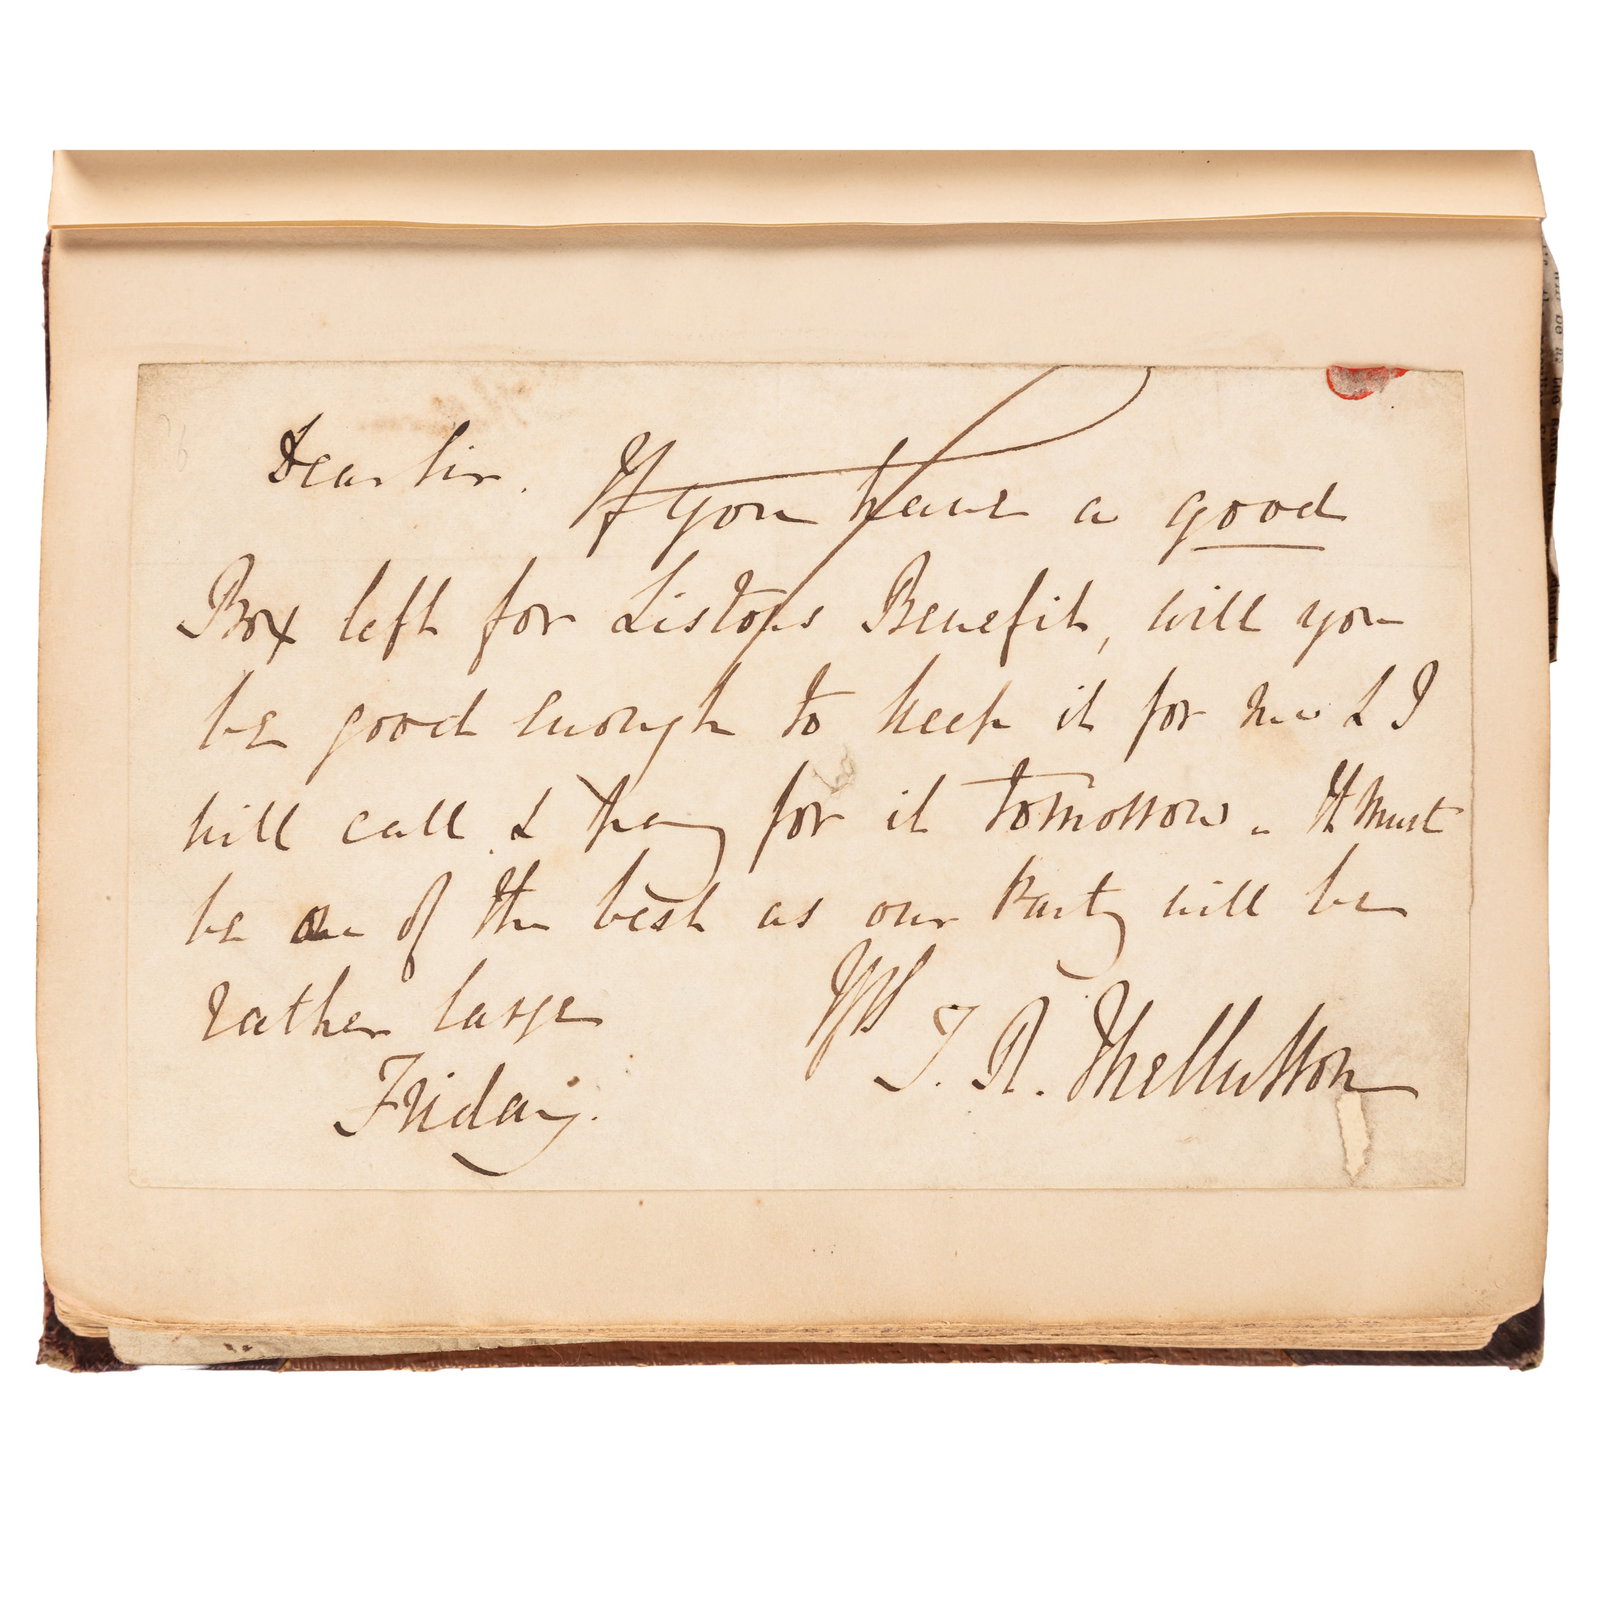 Dear Sir.
If you have a good
Box left for Listons Benefit, will you
be good enough to keep it for me & I
will call & pay for it tomorrow. It must
be one of the best as our Party will be
rather large
Yrs
T. R. Thellusson
Friday.